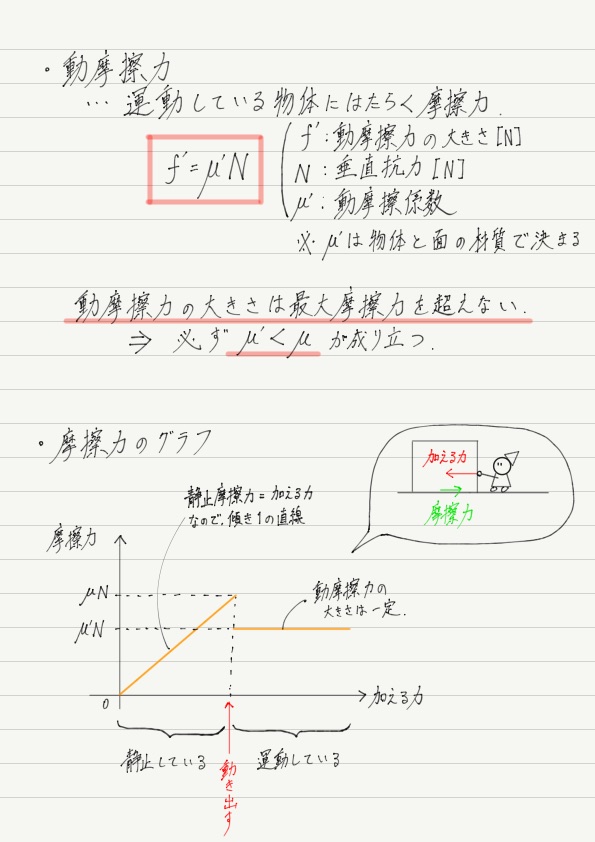 ・動摩擦力
… 運動している物体にはたらく摩擦力.
f'=μ'N
f':動摩擦力の大きさ[N]
N:垂直抗力[N]
μ':動摩擦係数
※ μ'は物体と面の材質で決まる
動摩擦力の大きさは最大摩擦力を超えない.
⇒ 必ず μ'<μ が成り立つ.
・摩擦力のグラフ
加える力
摩擦力
静止摩擦力=加える力
なので,傾き1の直線
摩擦力
μN
μ'N
動摩擦力の
大きさは一定.
0
加える力
静止している
運動している
動き出す